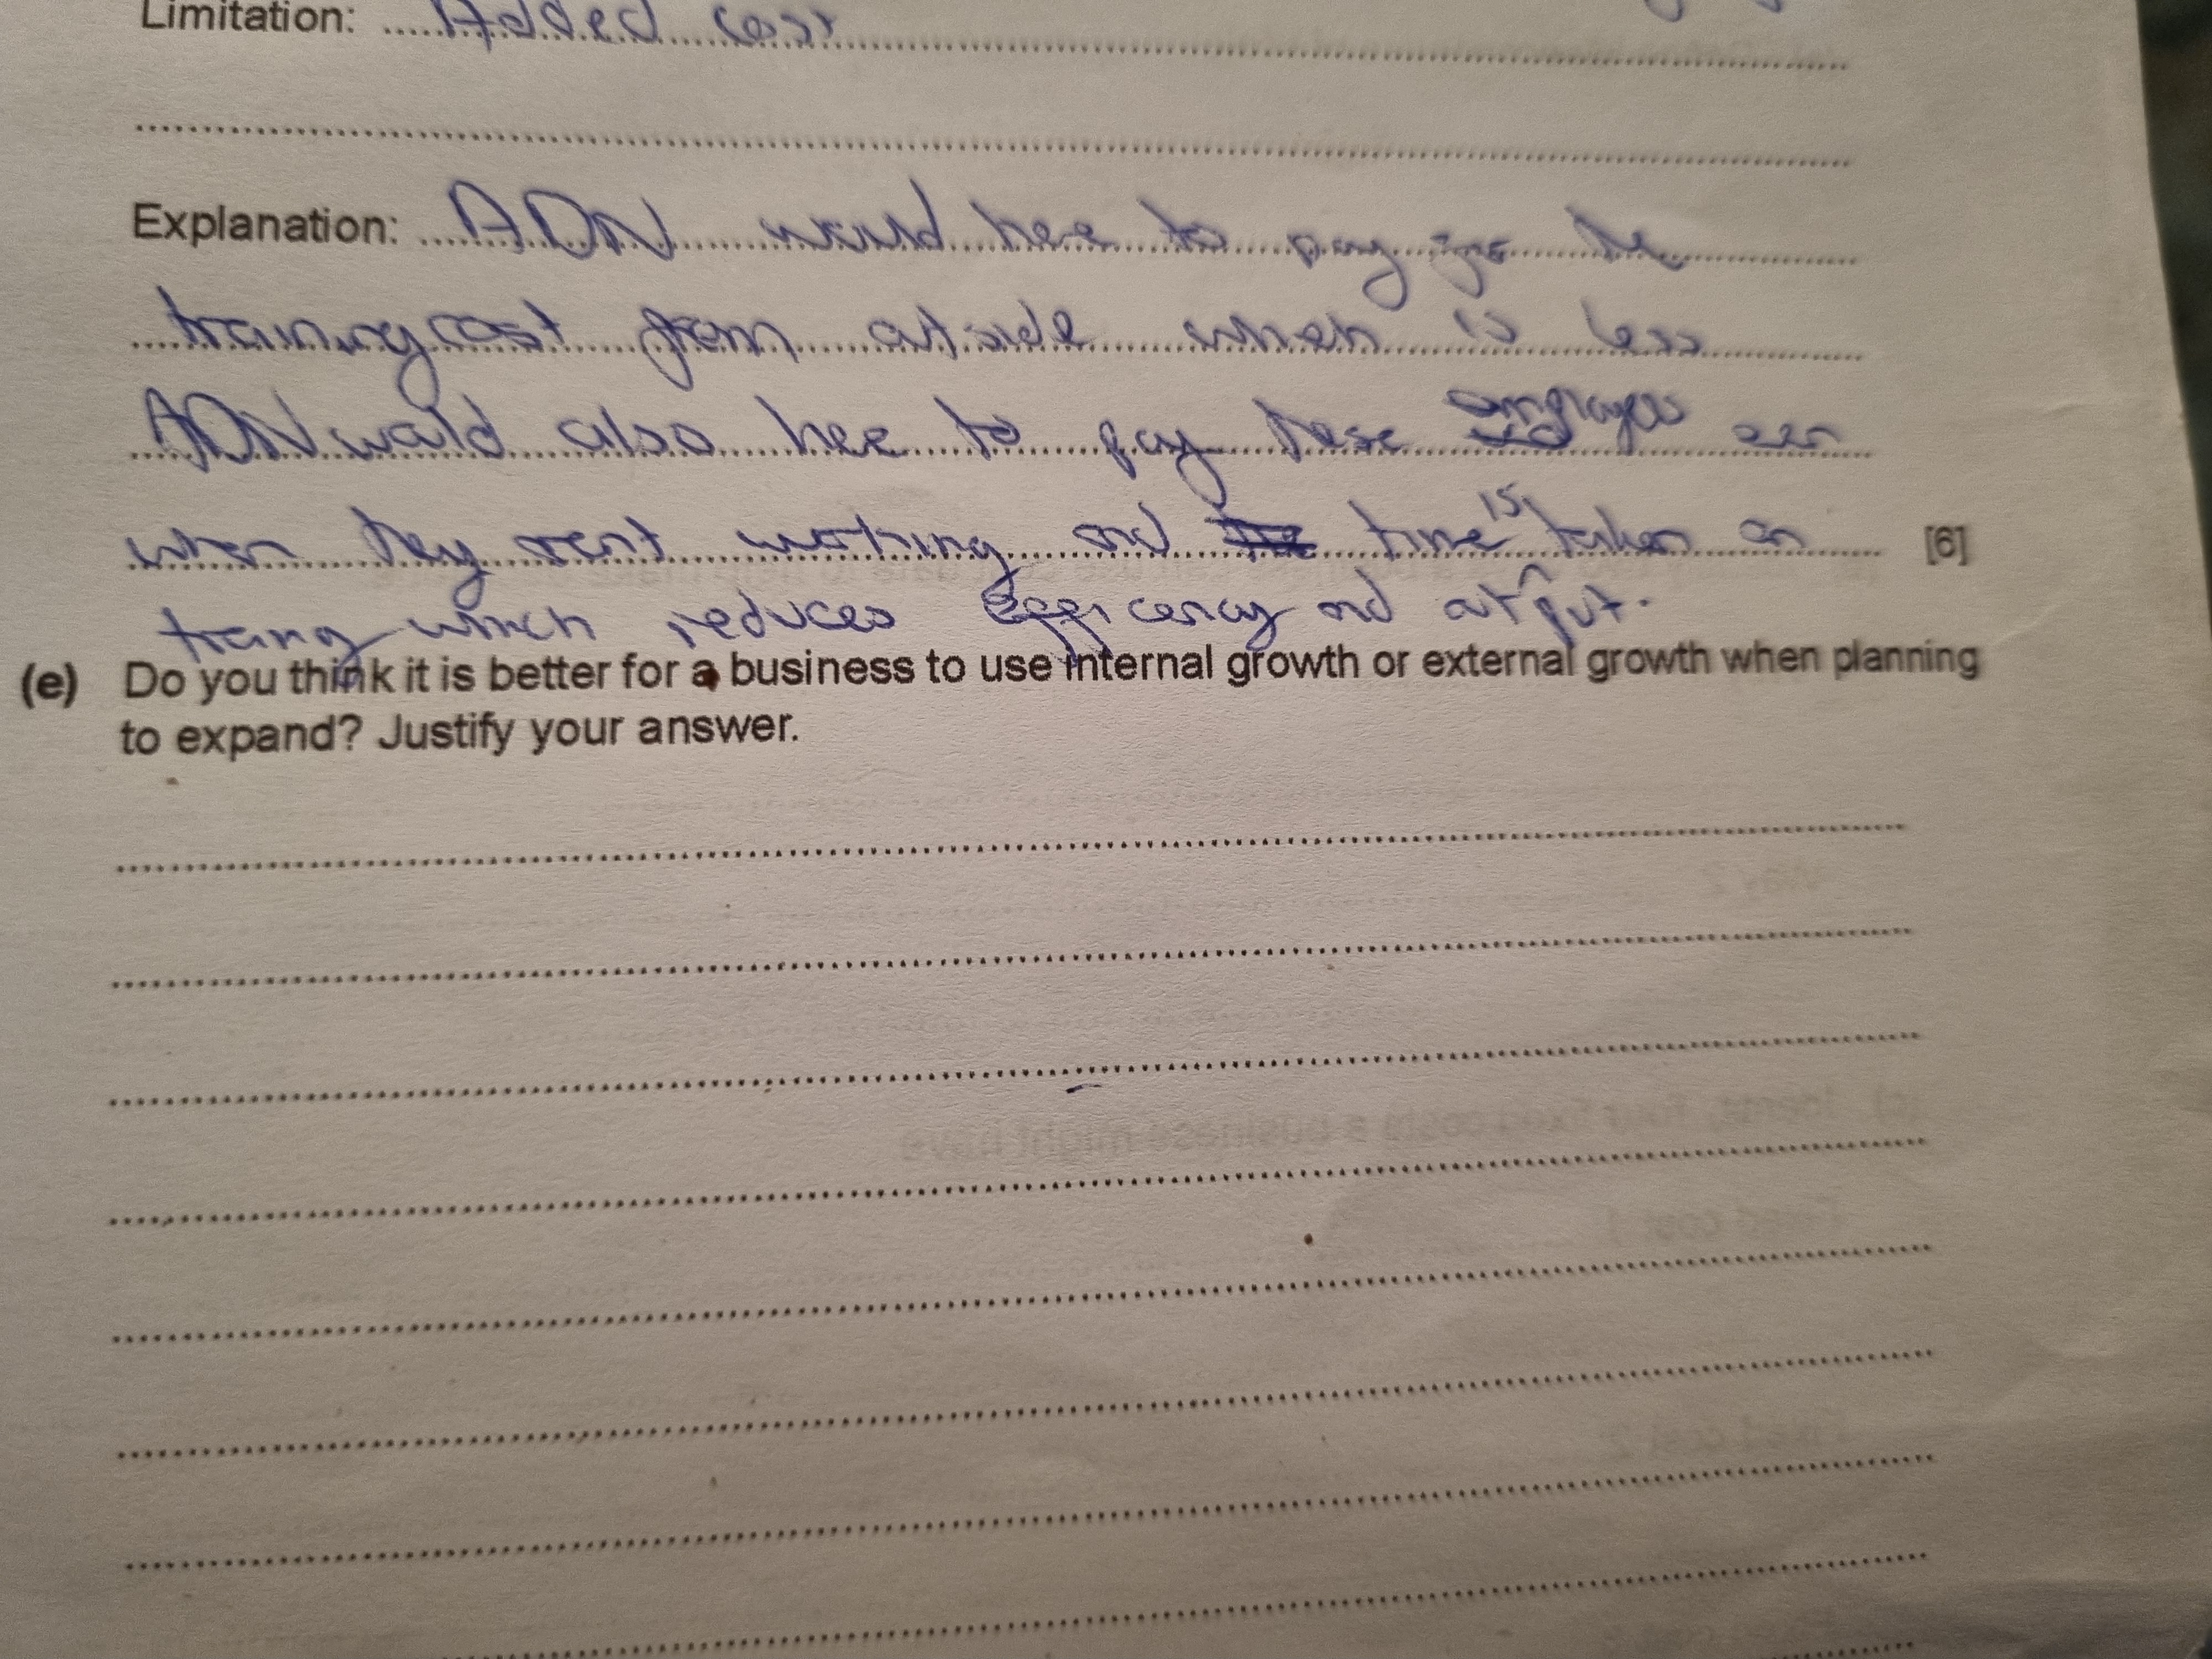 Limitation: Added cost
Explanation: ADN would have to pay for the
training cost from outside which is less
ADN would also have to pay these employes even
when they arent working and time is taken on
training which reduces efficency and output. [6]
(e) Do you think it is better for a business to use internal growth or external growth when planning
to expand? Justify your answer.